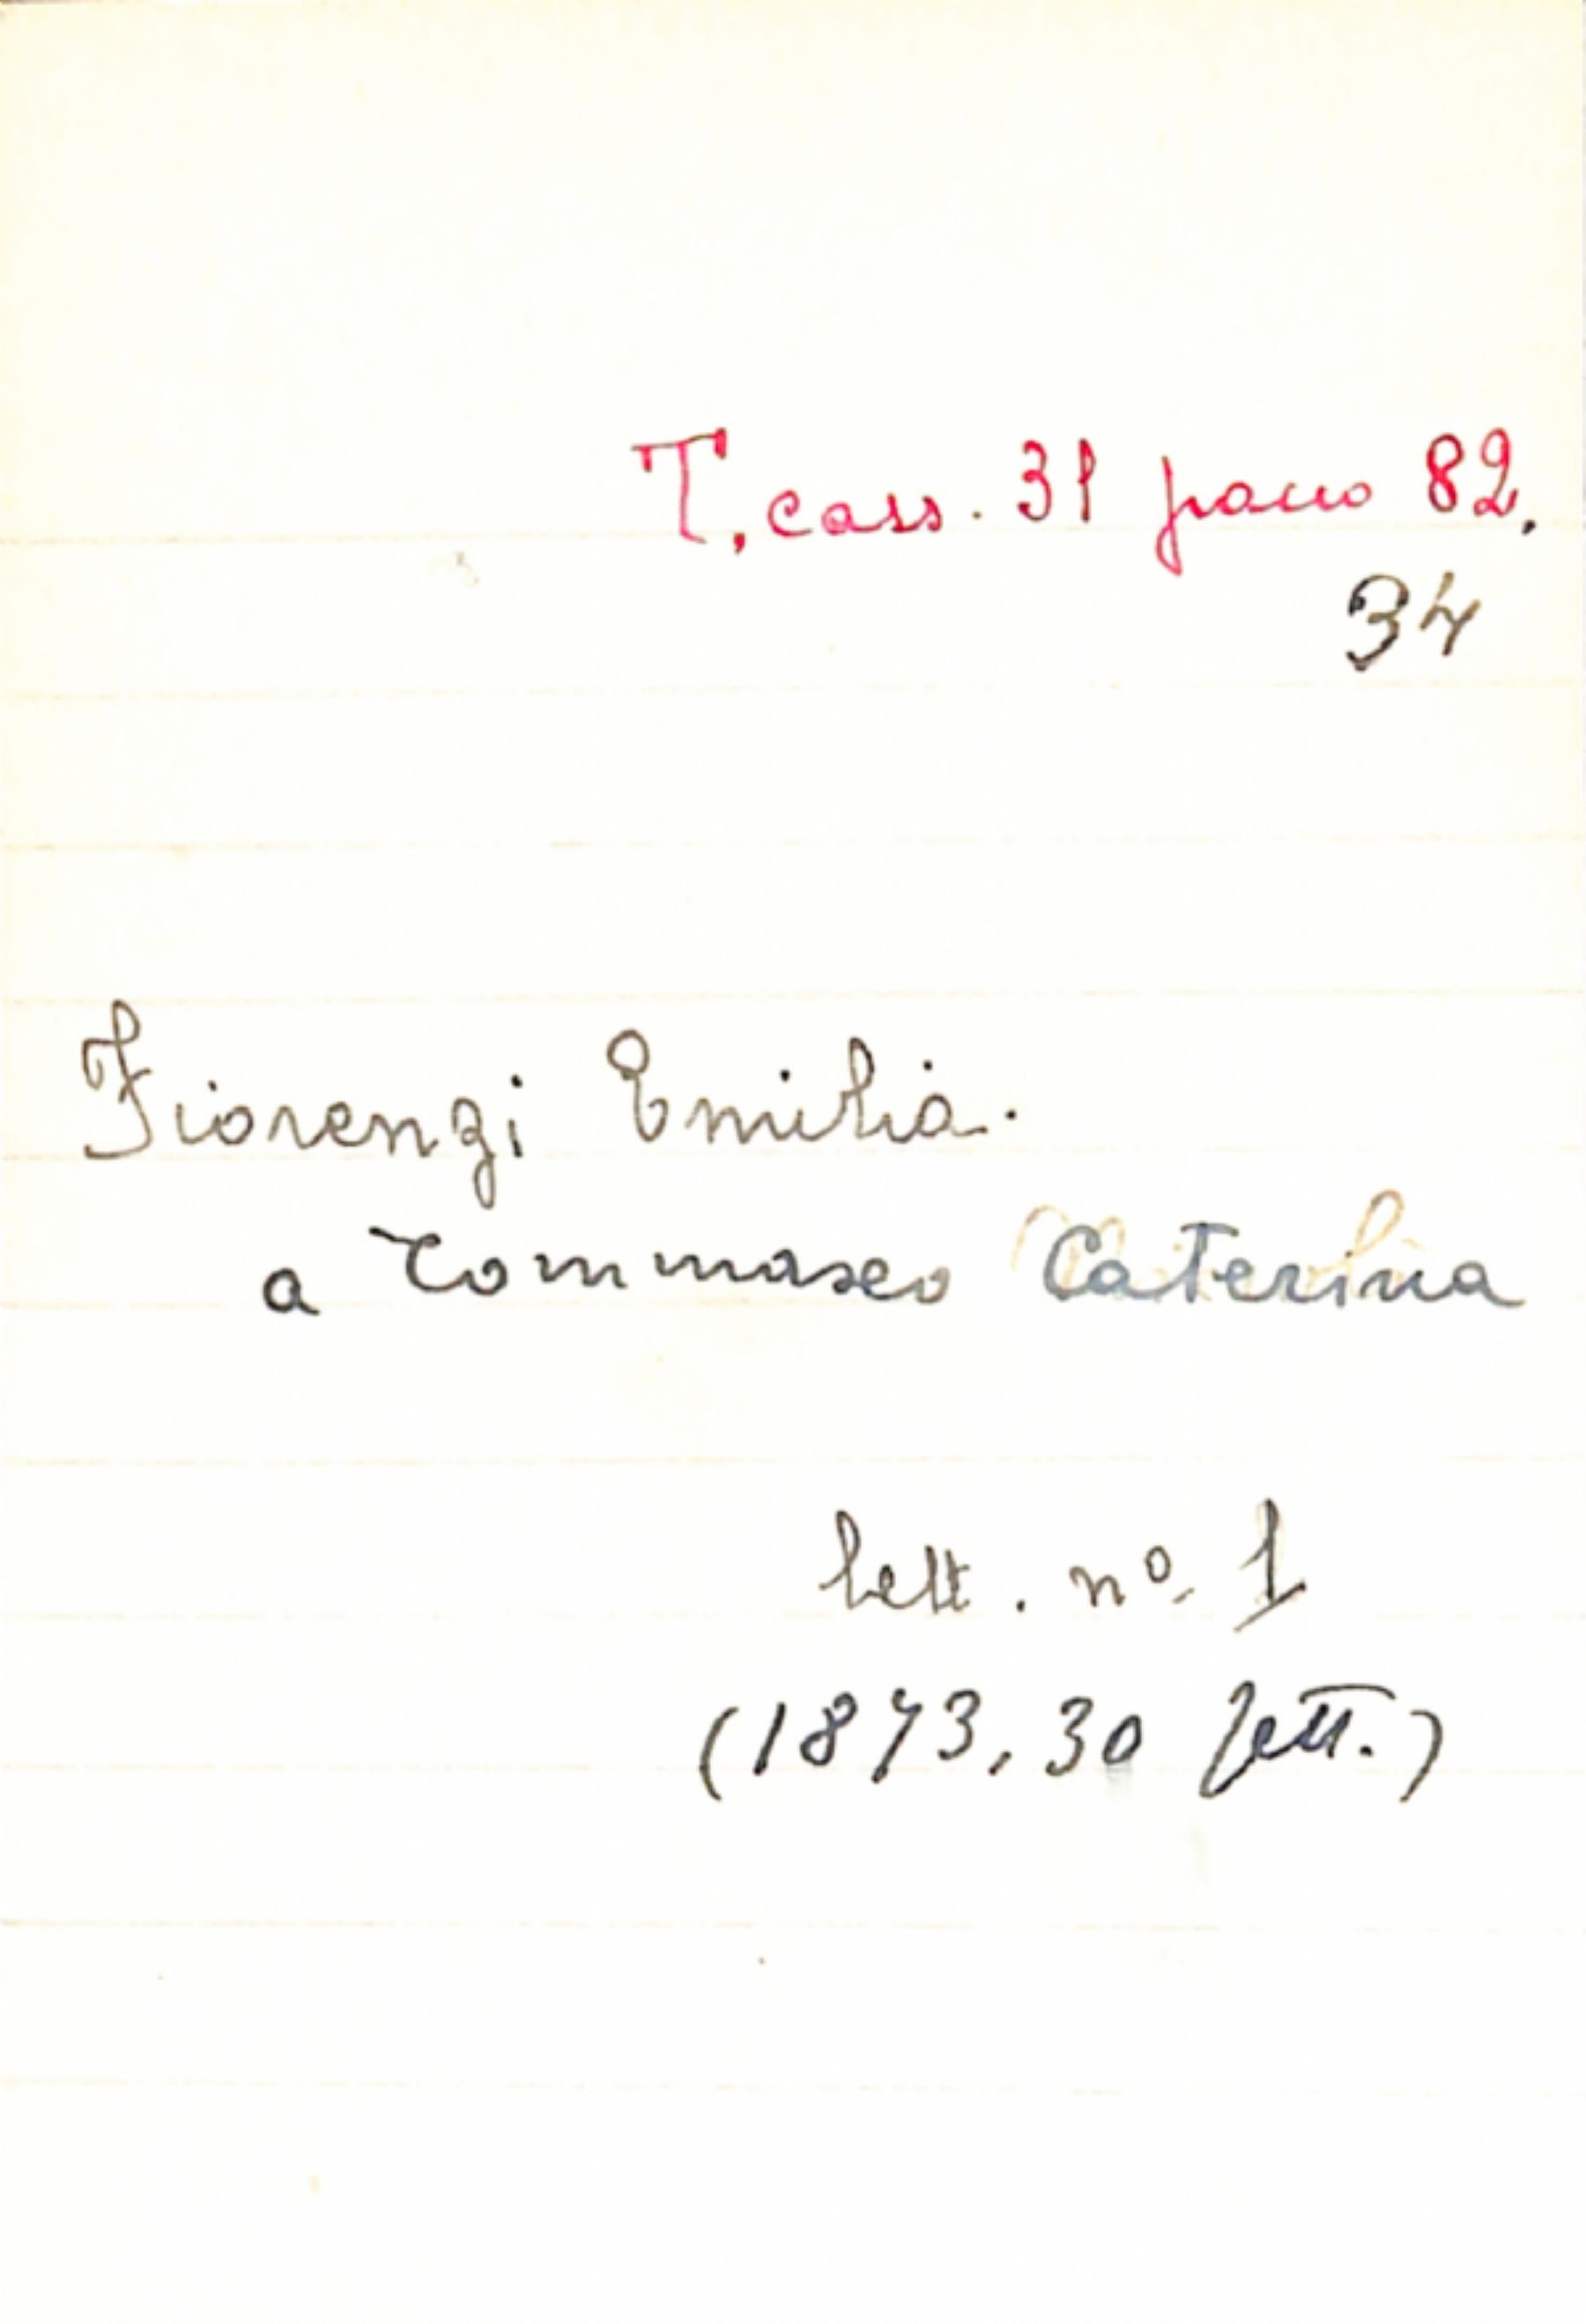 T. cass. 31 pacco 82.
34
Fiorenzi Emilia.
a Tommaseo Caterina
lett. nº 1
(1873, 30 sett.)